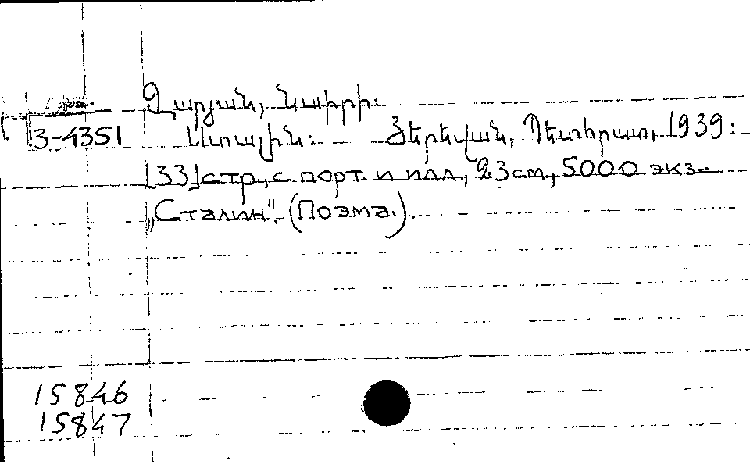 Զարյան, Նաիրի:
3-4351 Ստալին: Յերեվան, Պետհրատ, 1939:
[33] стр., с порт. и илл., 23 см, 5000 экз.
„Сталин". (Поэма.).
15846
15847